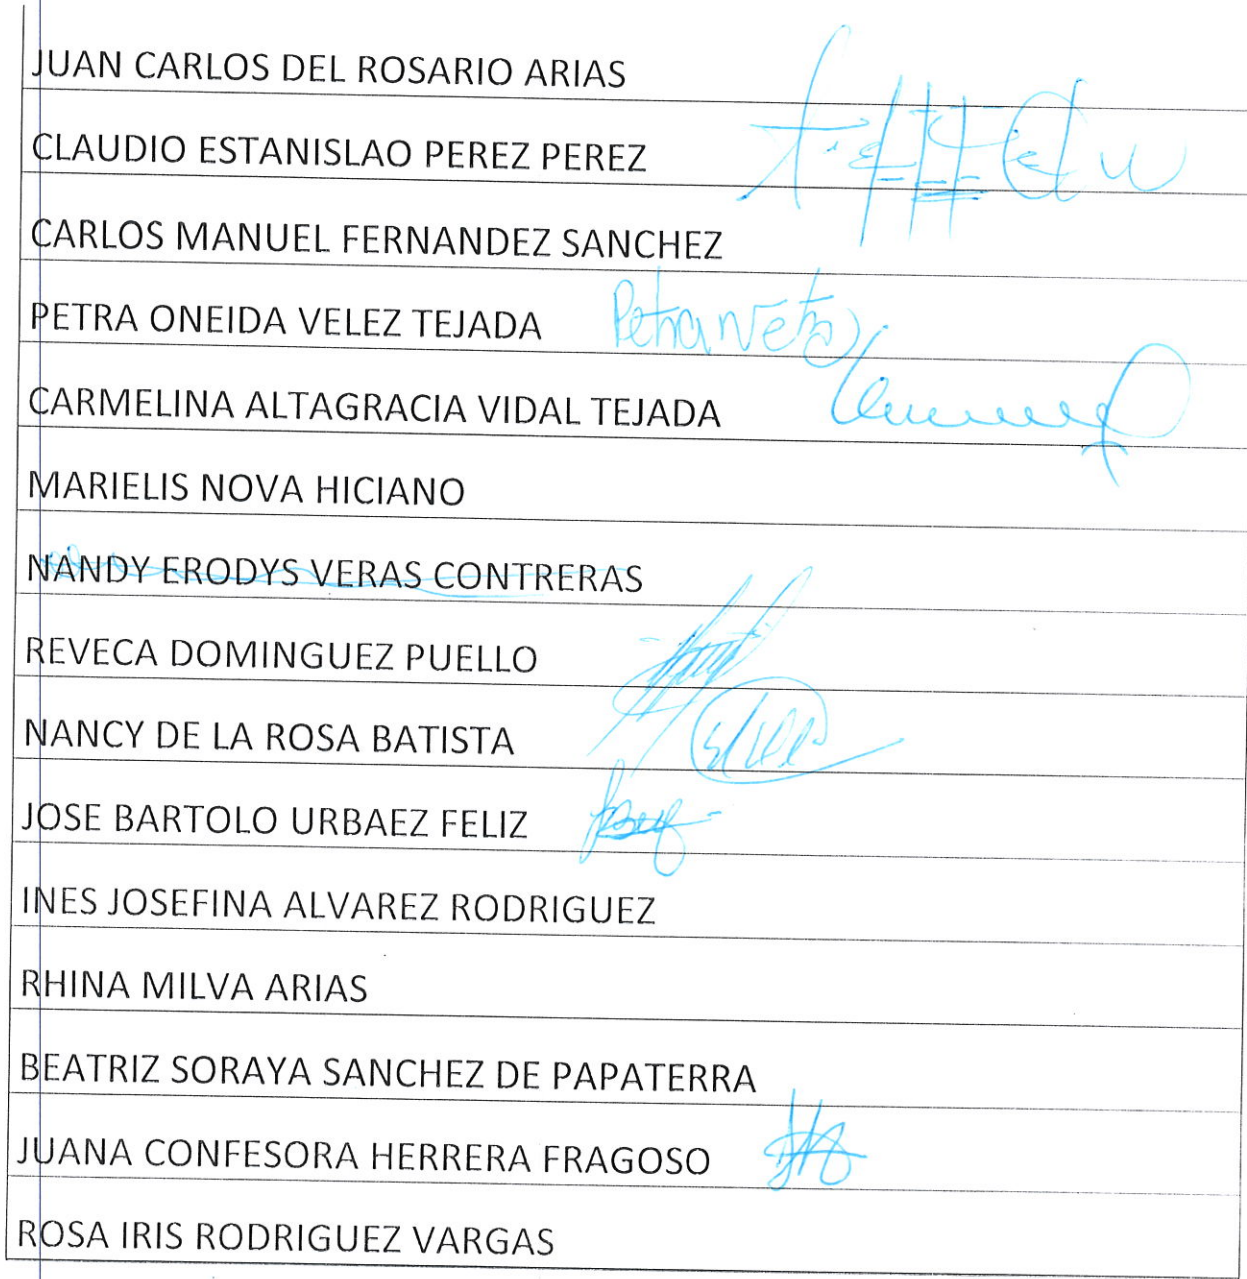 JUAN CARLOS DEL ROSARIO ARIAS
CLAUDIO ESTANISLAO PEREZ PEREZ
CARLOS MANUEL FERNANDEZ SANCHEZ
PETRA ONEIDA VELEZ TEJADA Petra
CARMELINA ALTAGRACIA VIDAL TEJADA
MARIELIS NOVA HICIANO
NANDY ERODYS VERAS CONTRERAS
REVECA DOMINGUEZ PUELLO
NANCY DE LA ROSA BATISTA
JOSE BARTOLO URBAEZ FELIZ
INES JOSEFINA ALVAREZ RODRIGUEZ
RHINA MILVA ARIAS
BEATRIZ SORAYA SANCHEZ DE PAPATERRA
JUANA CONFESORA HERRERA FRAGOSO
ROSA IRIS RODRIGUEZ VARGAS